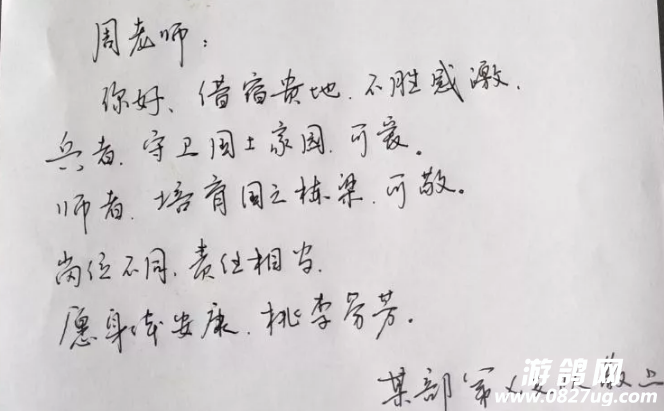 周老师：
你好、借宿贵地、不胜感激、
兵者、守卫国土家园、可爱。
师者、培育国之栋梁、可敬。
岗位不同、责任相当、
愿身体安康、桃李芬芳。
某部 敬上
游鸽网
www.0827ug.com